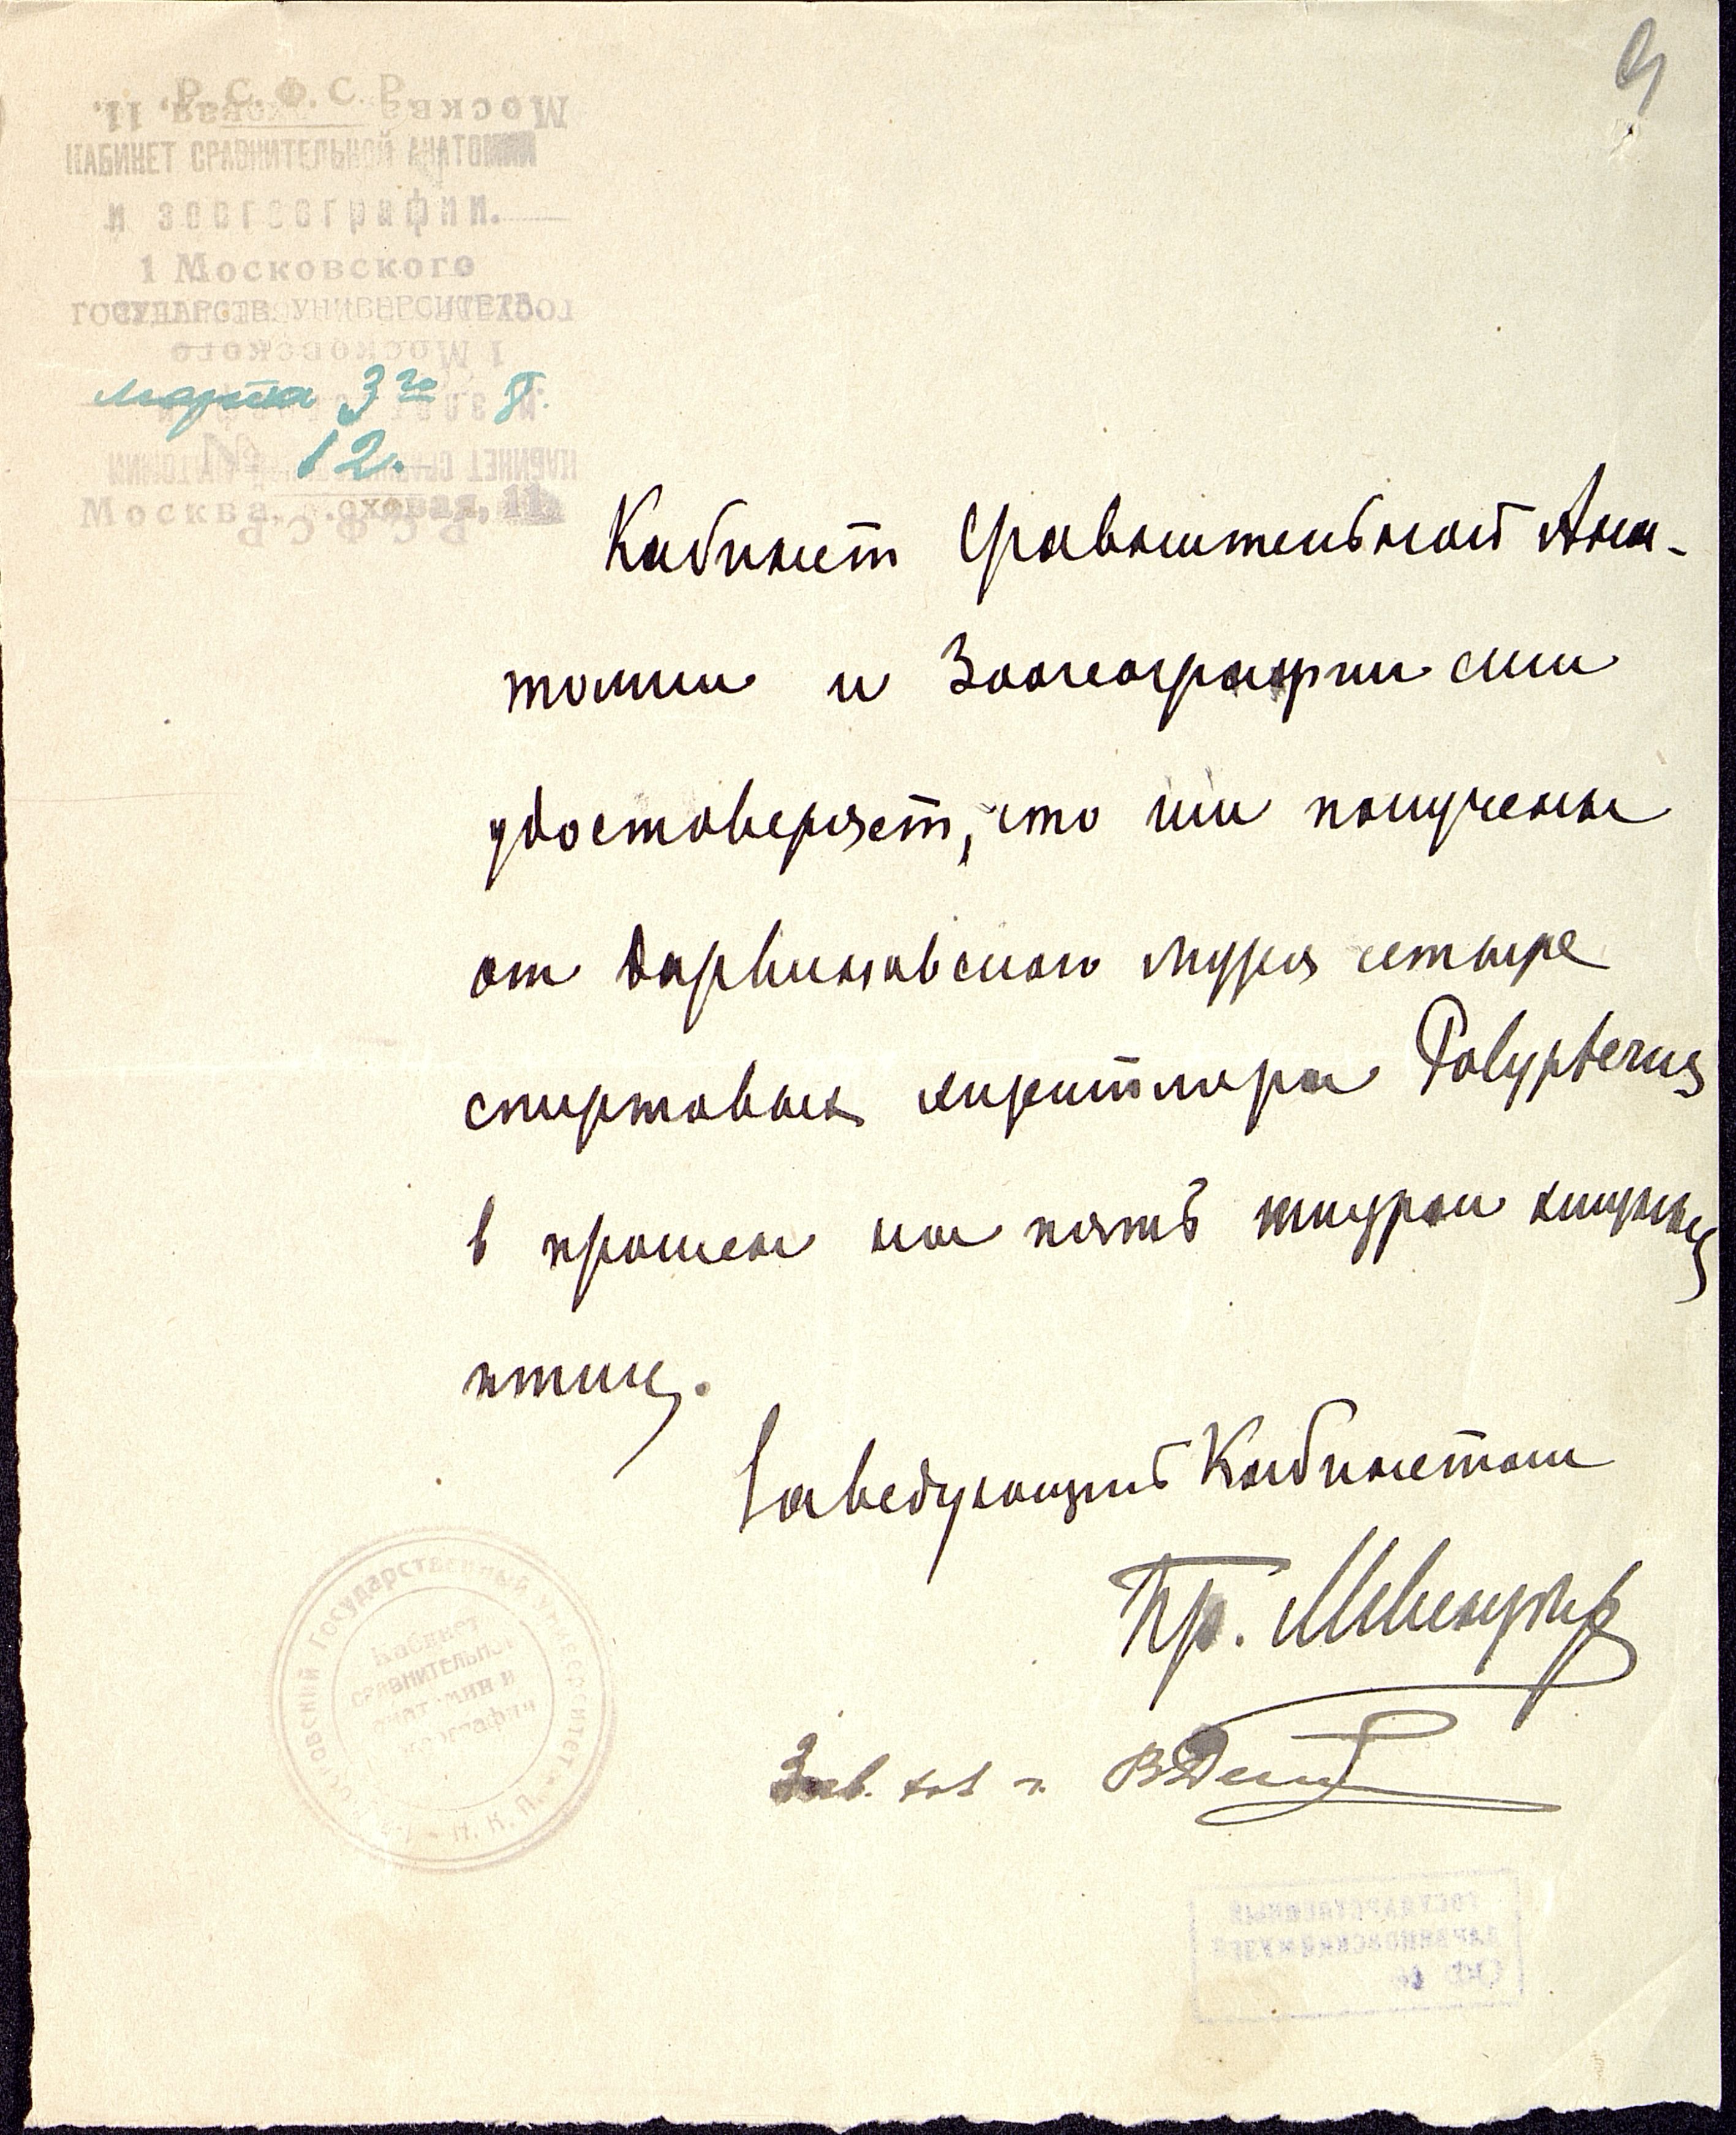 9
Р. С. Ф. С. Р.
КАБИНЕТ СРАВНИТЕЛЬНОЙ АНАТОМИИ
и зоогеографии.
1 Московского
ГОСУДАРСТВ. УНИВЕРСИТЕТА
марта 3го
№ 12.
Москва, Моховая, 11.
Кабинет Сравнительной Ана-
томии и Зоогеографии сим
удостоверяет, что им получены
от Дарвиновского Музея четыре
спиртовых экземпляра Polypterus
в промен на пять шкурок хищных
птиц.
Заведующий Кабинетом
Пр. М. Мензбир
Московский Государственный Университет
Н. К. П.
Кабинет
сравнительной
анатомии и
зоогеографии
ГОСУДАРСТВЕННЫЙ
ДАРВИНОВСКИЙ МУЗЕЙ